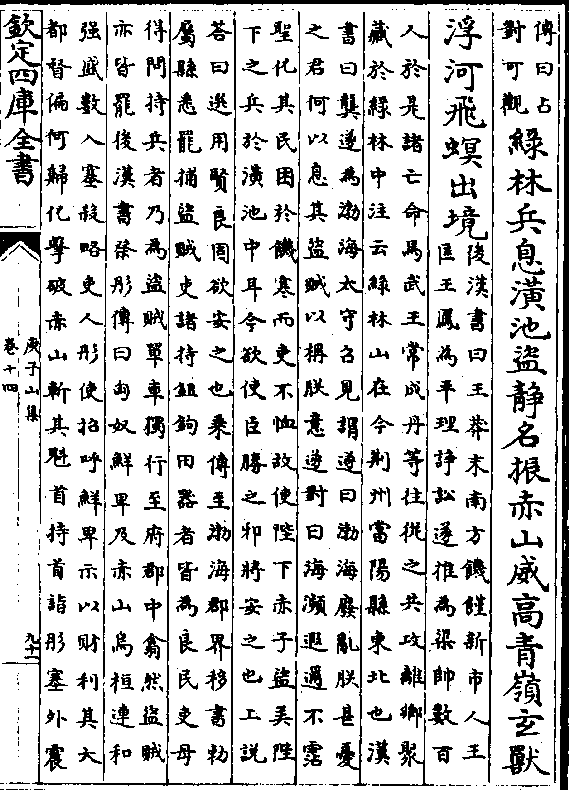 傳曰占
對可觀
綠林兵息潢池盜靜名振赤山威高青嶺玄獸
浮河飛螟出境
後漢書曰王莽末南方饑饉新市人王
匡王鳳為平理諍訟遂推為渠帥數百
人於是諸亡命馬武王常成丹等往從之共攻離鄉聚
藏於綠林中注云綠林山在今荆州當陽縣東北也漢
書曰龔遂為渤海太守召見謂遂曰渤海廢亂朕甚憂
之君何以息其盜賊以稱朕意遂對曰海瀕遐遠不霑
聖化其民困於饑寒而吏不恤故使陛下赤子盜弄陛
下之兵於潢池中耳今欲使臣勝之邪將安之也上説
荅曰選用賢良固欲安之也乗傳至渤海郡界移書勅
屬縣悉罷捕盜賊吏諸持鉏鉤田器者皆為良民吏毋
得問持兵者乃為盜賊單車獨行至府郡中翕然盜賊
亦皆罷後漢書祭肜傳曰匈奴鮮卑及赤山烏桓連和
强盛數入塞殺略吏人肜使招呼鮮卑示以財利其大
都督偏何歸化擊破赤山斬其魁首持首詣肜塞外震
欽定四庫全書
庾子山集
卷十四
九十二